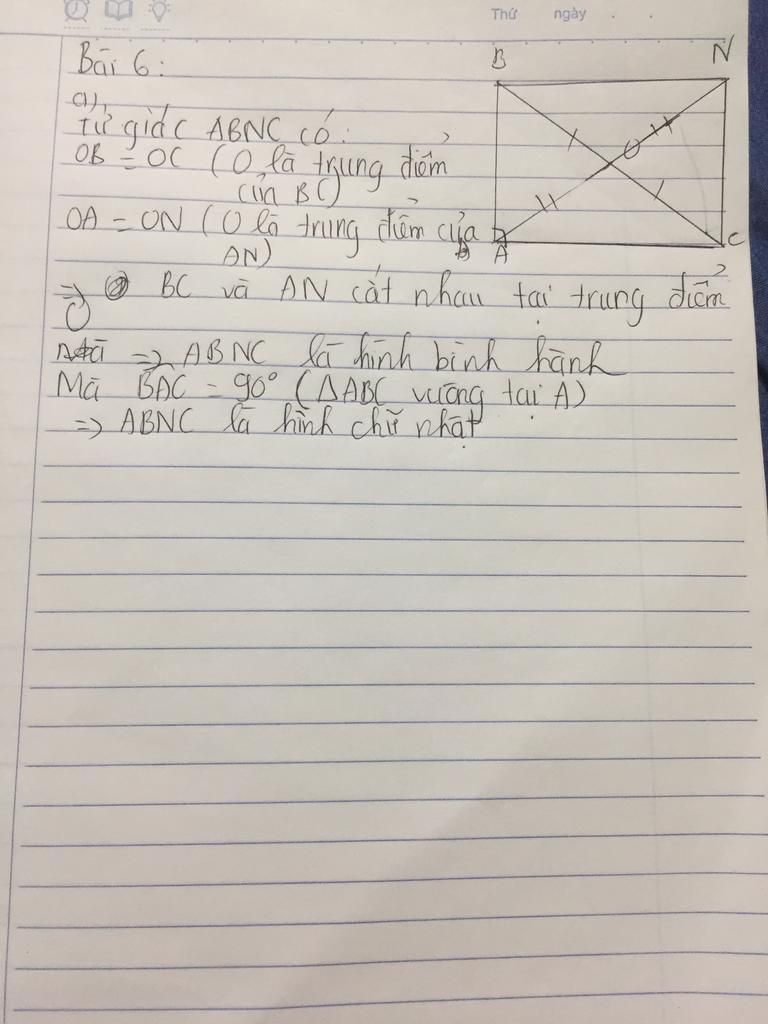 Thứ ngày . .
Bài 6:
a),
Tứ giác ABNC có:
OB = OC (O là trung điểm
của BC)
OA = ON (O là trung điểm của
AN)
=> BC và AN cắt nhau tại trung điểm
O
=> ABNC là hình bình hành
Mà BAC = 90° (ΔABC vuông tại A)
=> ABNC là hình chữ nhật
B N
O
A C